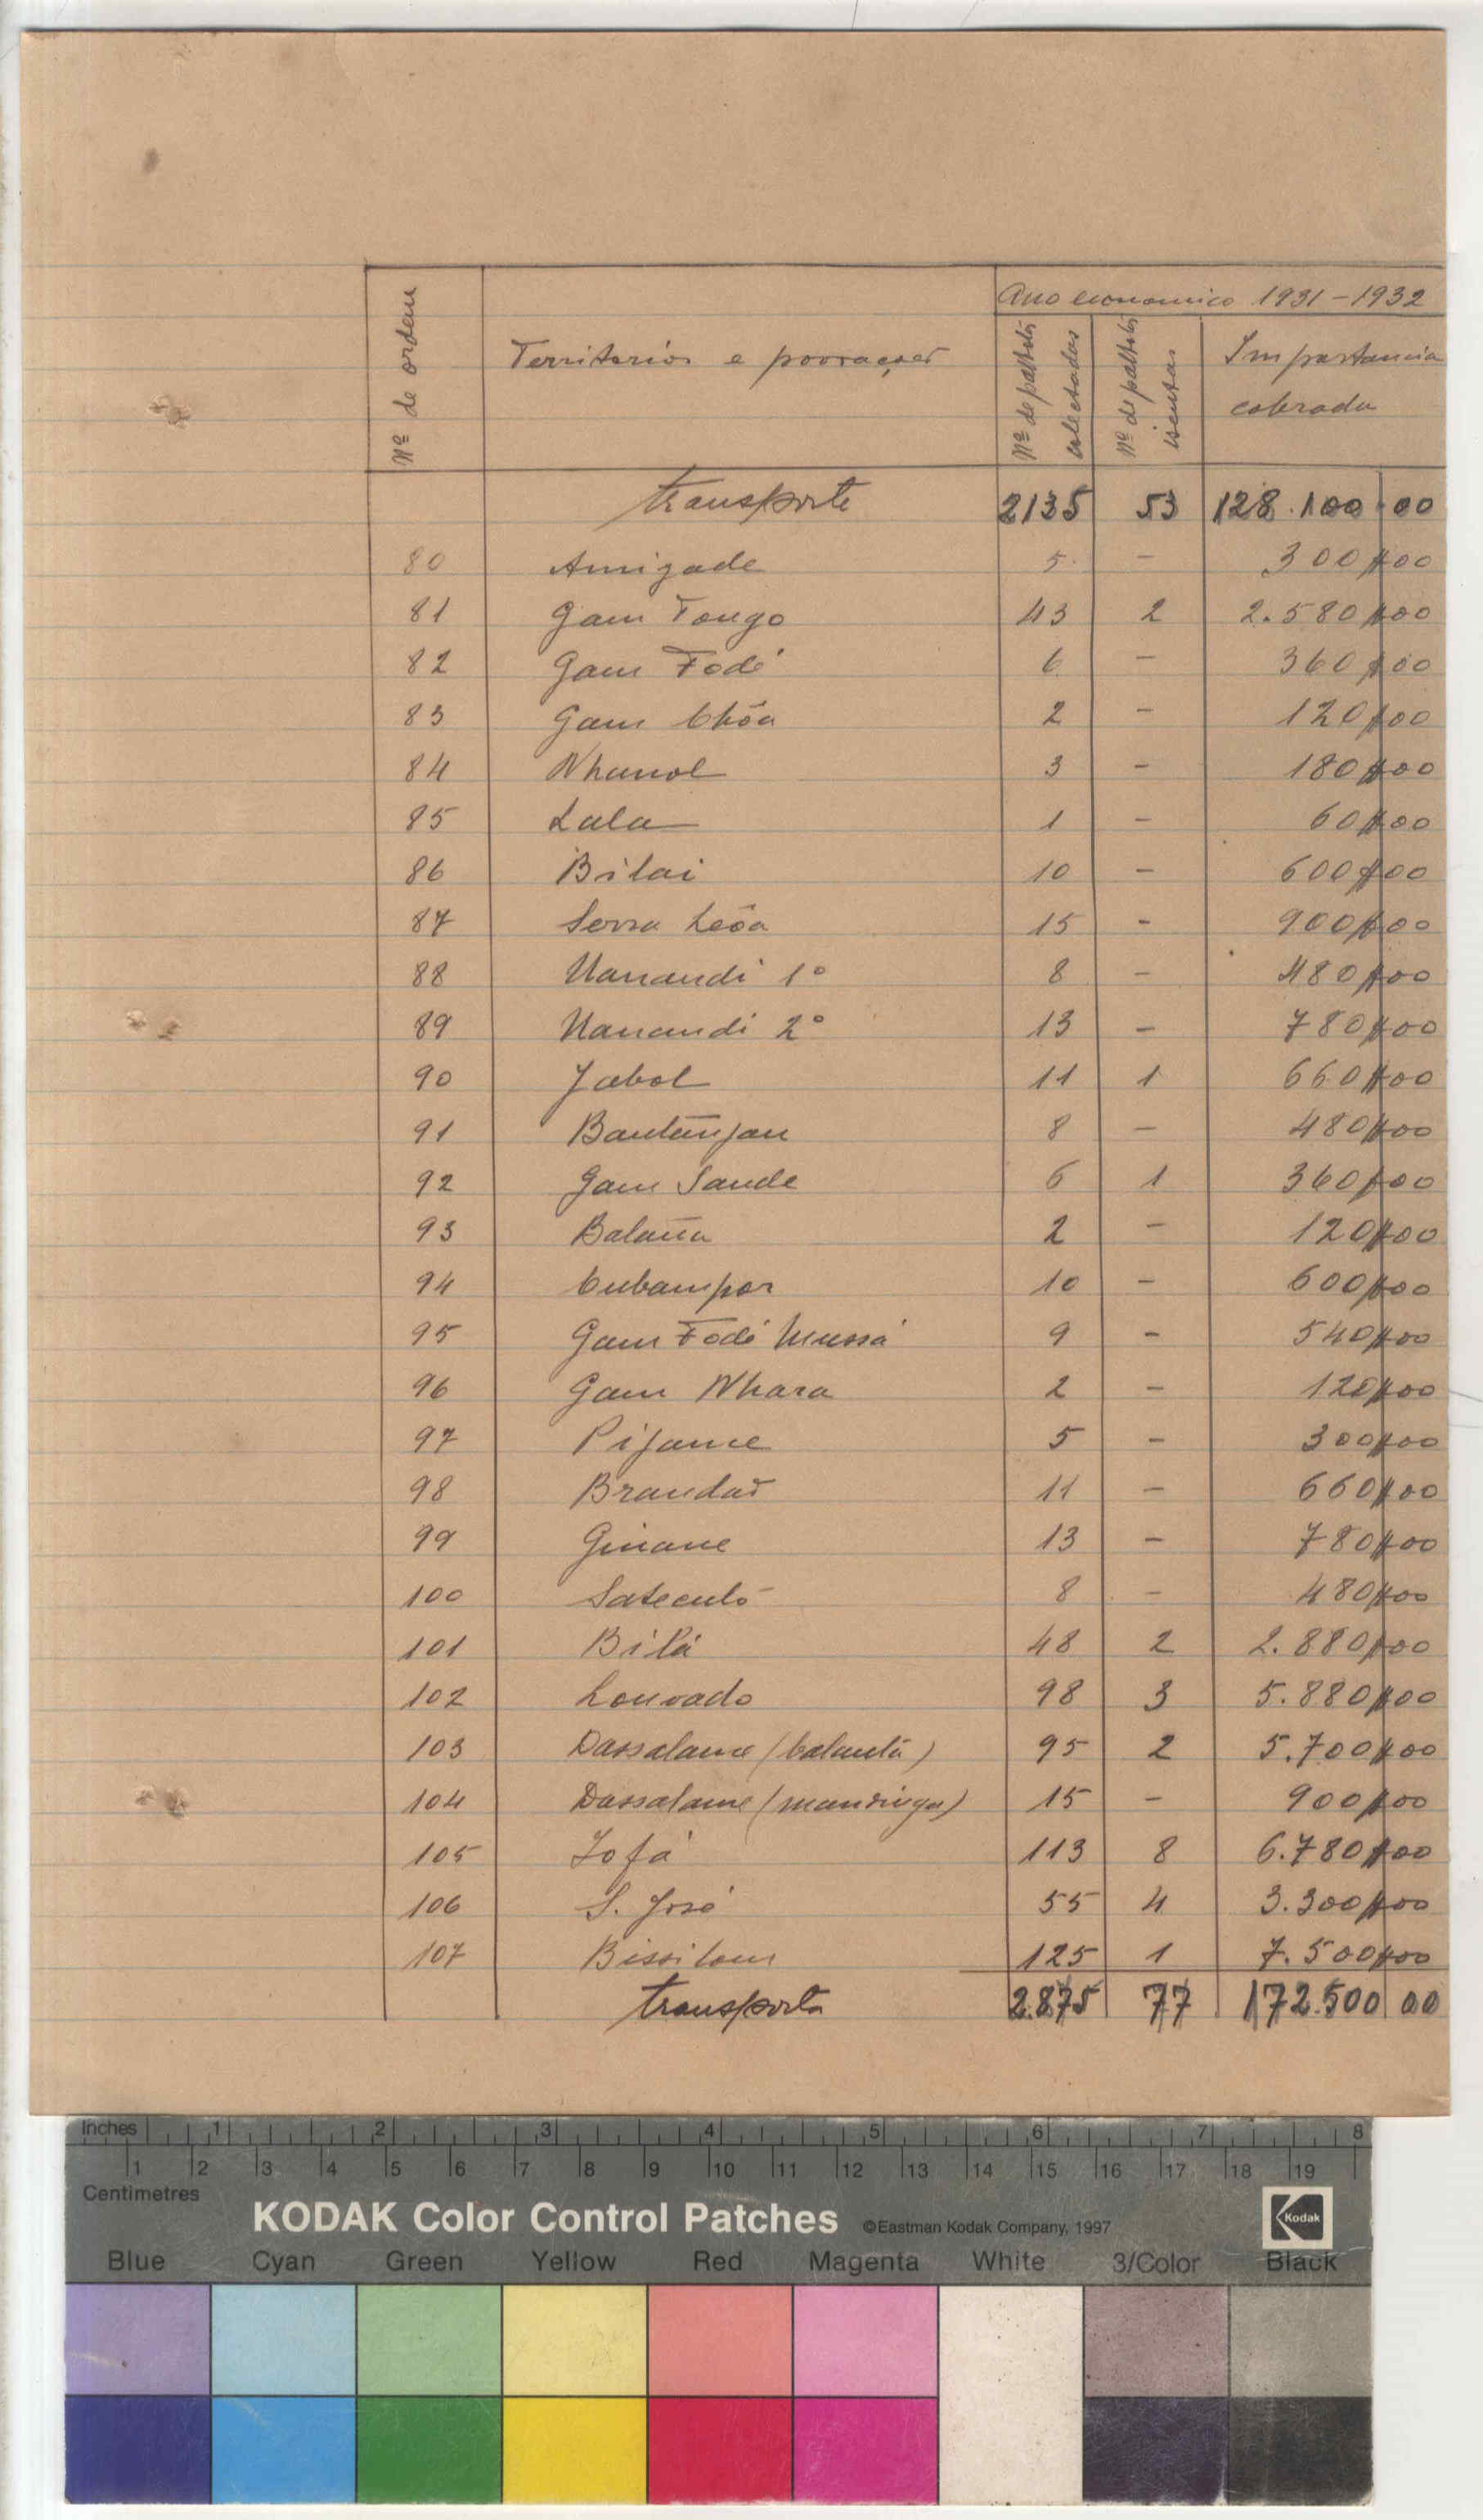 Ano economico 1931-1932
Nº de ordem Territorios e povoações Nº de palhotas colectadas Nº de palhotas isentas Importancia cobrada
Transporte 2135 53 128.100.00
80 Amizade 5 - 300$00
81 Gam Tongo 43 2 2.580$00
82 Gam Fodé 6 - 360$00
83 Gam Chôa 2 - 120$00
84 Nhanol 3 - 180$00
85 Lala 1 - 60$00
86 Bilai 10 - 600$00
87 Serra Leôa 15 - 900$00
88 Uanandi 1º 8 - 480$00
89 Uanandi 2º 13 - 780$00
90 Jabol 11 1 660$00
91 Bantanjan 8 - 480$00
92 Gam Sande 6 1 360$00
93 2 - 120$00
94 Cubampor 10 - 600$00
95 Gam Fodé Mussá 9 - 540$00
96 Gam Nhara 2 - 120$00
97 Pijame 5 - 300$00
98 Brandão 11 - 660$00
99 Ginane 13 - 780$00
100 8 - 480$00
101 48 2 2.880$00
102 Louvado 98 3 5.880$00
103 Dassalame (balanta) 95 2 5.700$00
104 Dassalame (mandinga) 15 - 900$00
105 113 8 6.780$00
106 S. José 55 4 3.300$00
107 Bissilom 125 1 7.500$00
Transporta 2.875 77 172.500 00
Inches 1 2 3 4 5 6 7 8
1 2 3 4 5 6 7 8 9 10 11 12 13 14 15 16 17 18 19
Centimetres
KODAK Color Control Patches ©Eastman Kodak Company, 1997 Kodak
Blue Cyan Green Yellow Red Magenta White 3/Color Black